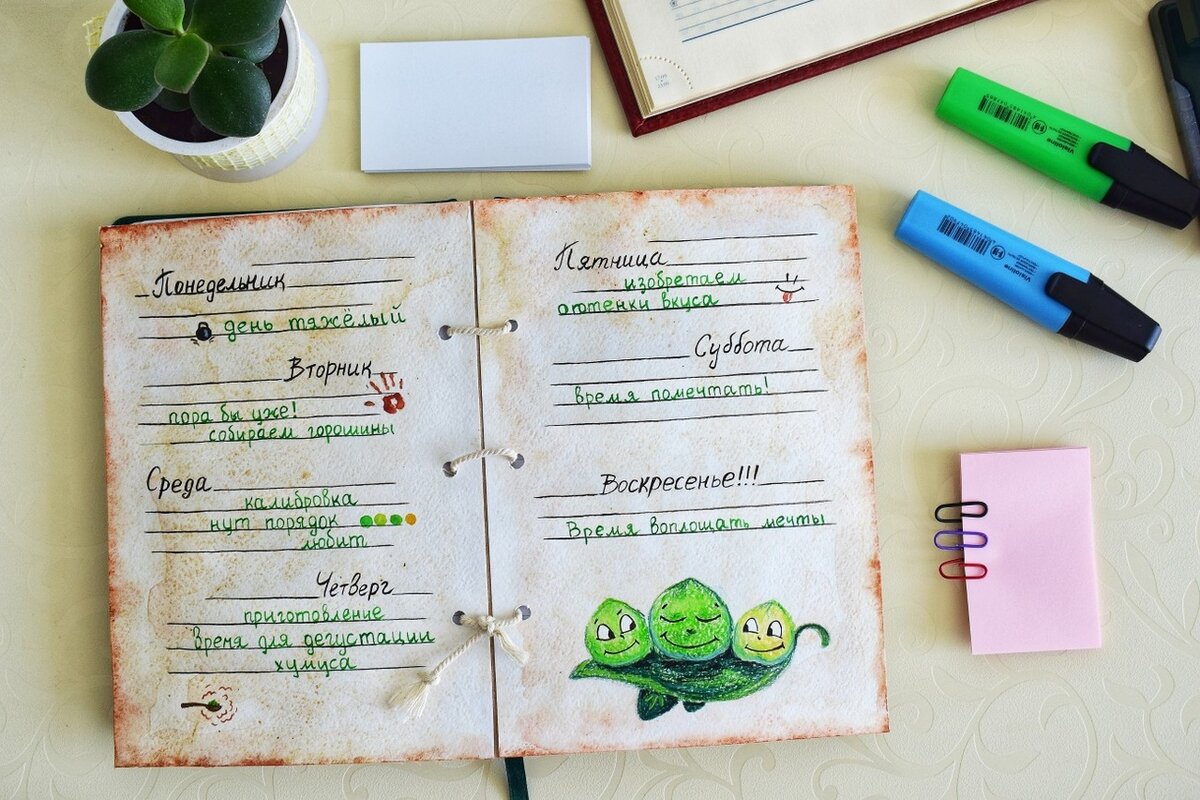 Понедельник
день тяжёлый
Вторник
пора бы уже!
собираем горошины
Среда
калибровка
нут порядок
любит
Четверг
приготовление
Время для дегустации
хумуса
Пятница
изобретаем
оттенки вкуса
Суббота
время помечтать!
Воскресенье!!!
Время воплощать мечты
Visioline
Visioline